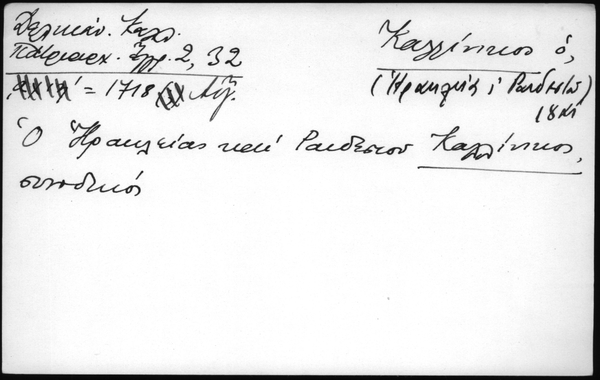 Δελικάν. Καλλ.
Πατριαρχ. Ἔγγρ. 2, 32
= 1718 Αὔγ.
Καλλίνικος ὁ,
(Ἡρακλείας & Ραιδεστοῦ)
18 αἰ
Ὁ Ἡρακλείας καὶ Ραιδεστοῦ Καλλίνικος,
συνοδικός